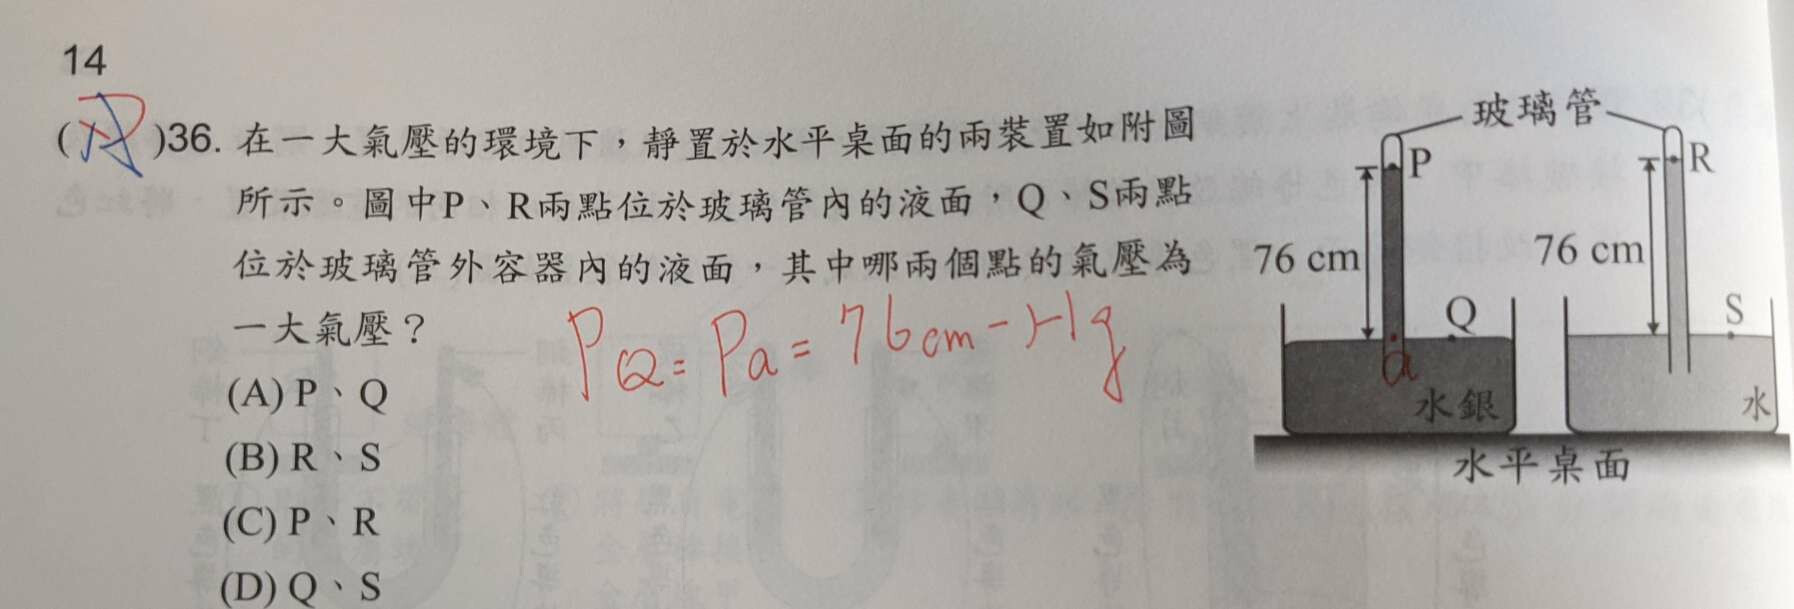 14
( )36. 在一大氣壓的環境下，靜置於水平桌面的兩裝置如附圖
所示。圖中P、R兩點位於玻璃管內的液面，Q、S兩點
位於玻璃管外容器內的液面，其中哪兩個點的氣壓為
一大氣壓？
PQ = Pa = 76 cm-Hg
(A) P、Q
(B) R、S
(C) P、R
(D) Q、S
玻璃管
P
R
76 cm
76 cm
Q
S
a
水銀
水
水平桌面